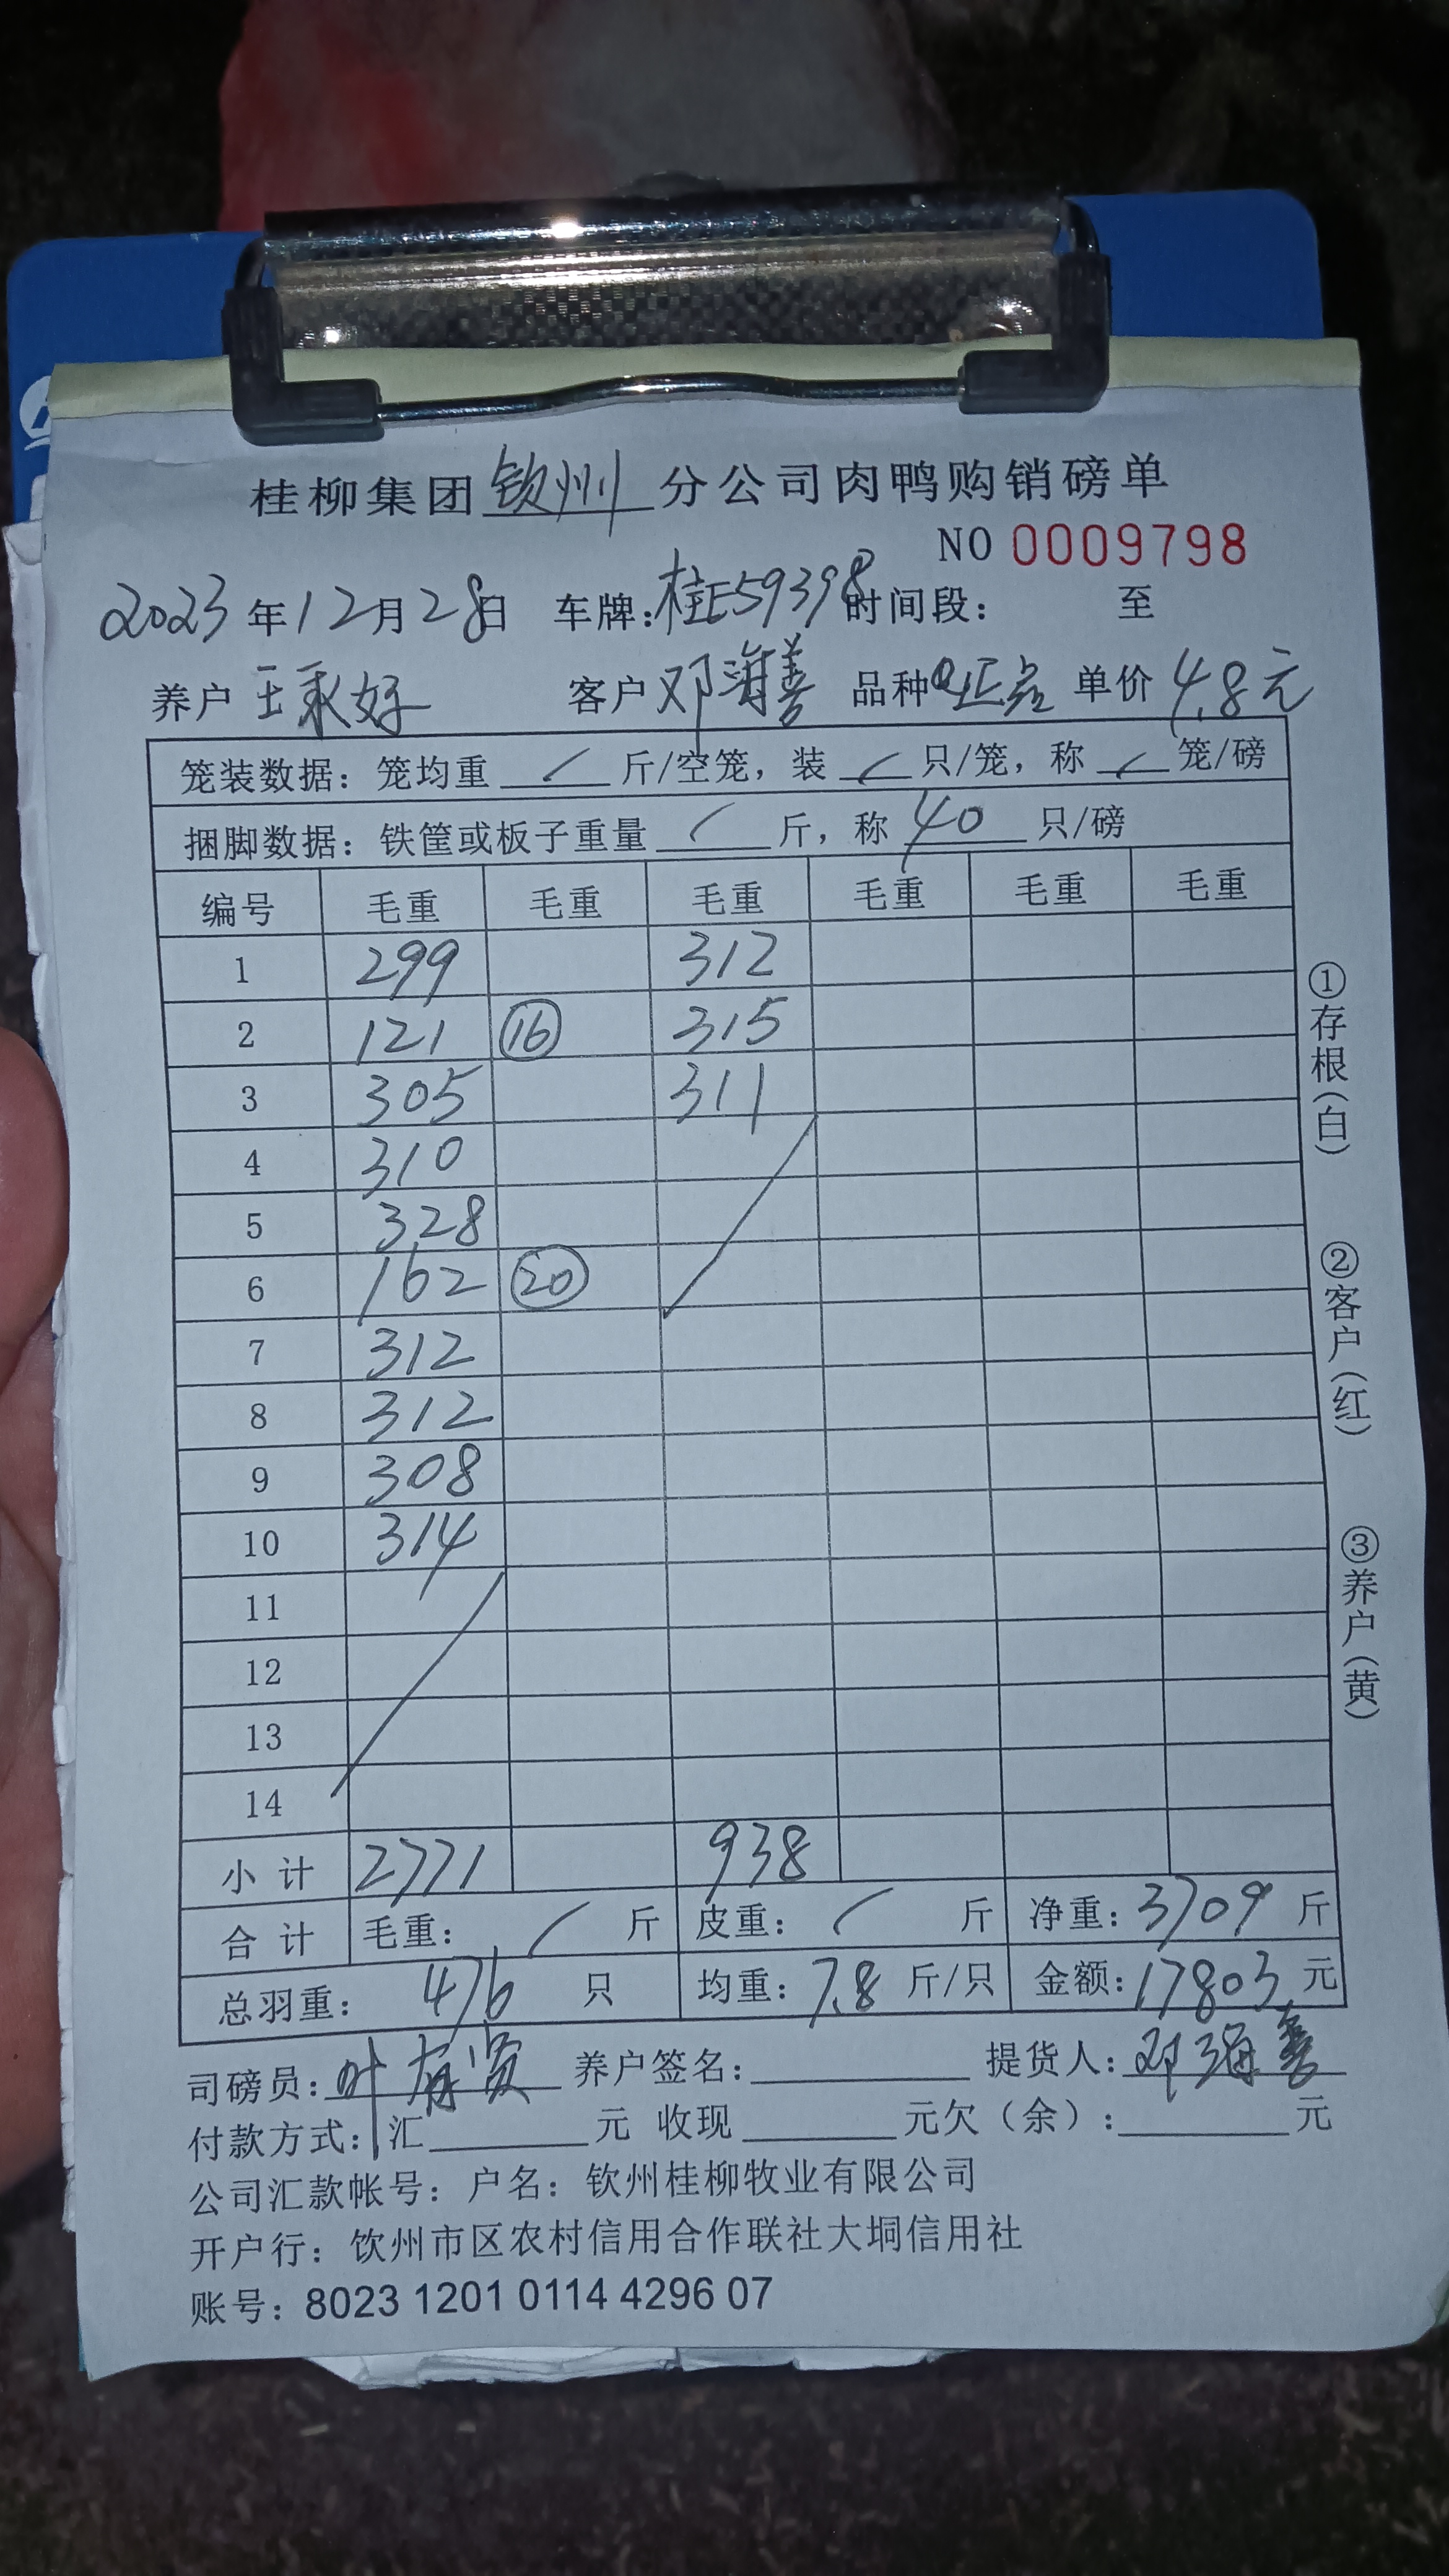 桂柳集团钦州分公司肉鸭购销磅单
NO 0009798
2023年12月28日 车牌:桂E59398时间段: 至
养户 王秉好 客户 邓海善 品种 正品 单价 4.8元
笼装数据: 笼均重 / 斤/空笼, 装 / 只/笼, 称 / 笼/磅
捆脚数据: 铁筐或板子重量 / 斤, 称 40 只/磅
编号 毛重 毛重 毛重 毛重 毛重 毛重
1 299 312
2 121 ⑯ 315
3 305 311
4 310
5 328
6 162 ⑳
7 312
8 312
9 308
10 314
11
12
13
14
小计 2771 938
合计 毛重: / 斤 皮重: / 斤 净重: 3709 斤
总羽重: 476 只 均重: 7.8 斤/只 金额: 17803 元
司磅员: 叶有贤 养户签名: 提货人: 邓海善
付款方式: 汇 元 收现 元欠（余）: 元
公司汇款帐号: 户名: 钦州桂柳牧业有限公司
开户行: 钦州市区农村信用合作联社大垌信用社
账号: 8023 1201 0114 4296 07
①存根(白)
②客户(红)
③养户(黄)